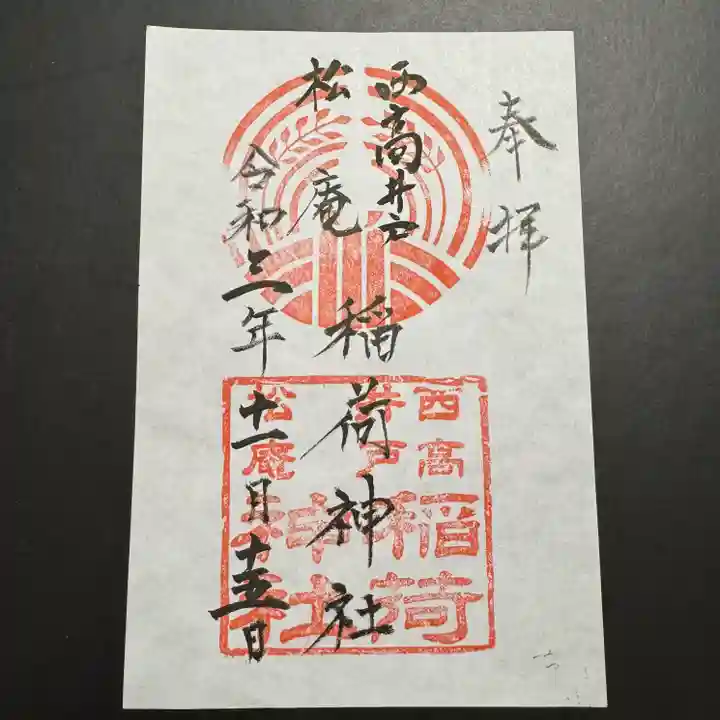 奉拝
西高井戸
松庵
稲荷神社
令和三年十一月十五日
西高井戸
松庵
稲荷神社